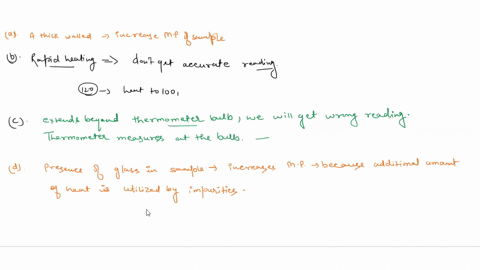 (a) A thick walled → increase M.P of sample
(b). Rapid heating => don't get accurate reading
120 → heat to 100,
(c). extends beyond thermometer bulb, we will get wrong reading.
Thermometer measures at the bulb. —
(d) Presence of glass in sample → increases M.P. → because additional amount
of heat is utilized by impurities.